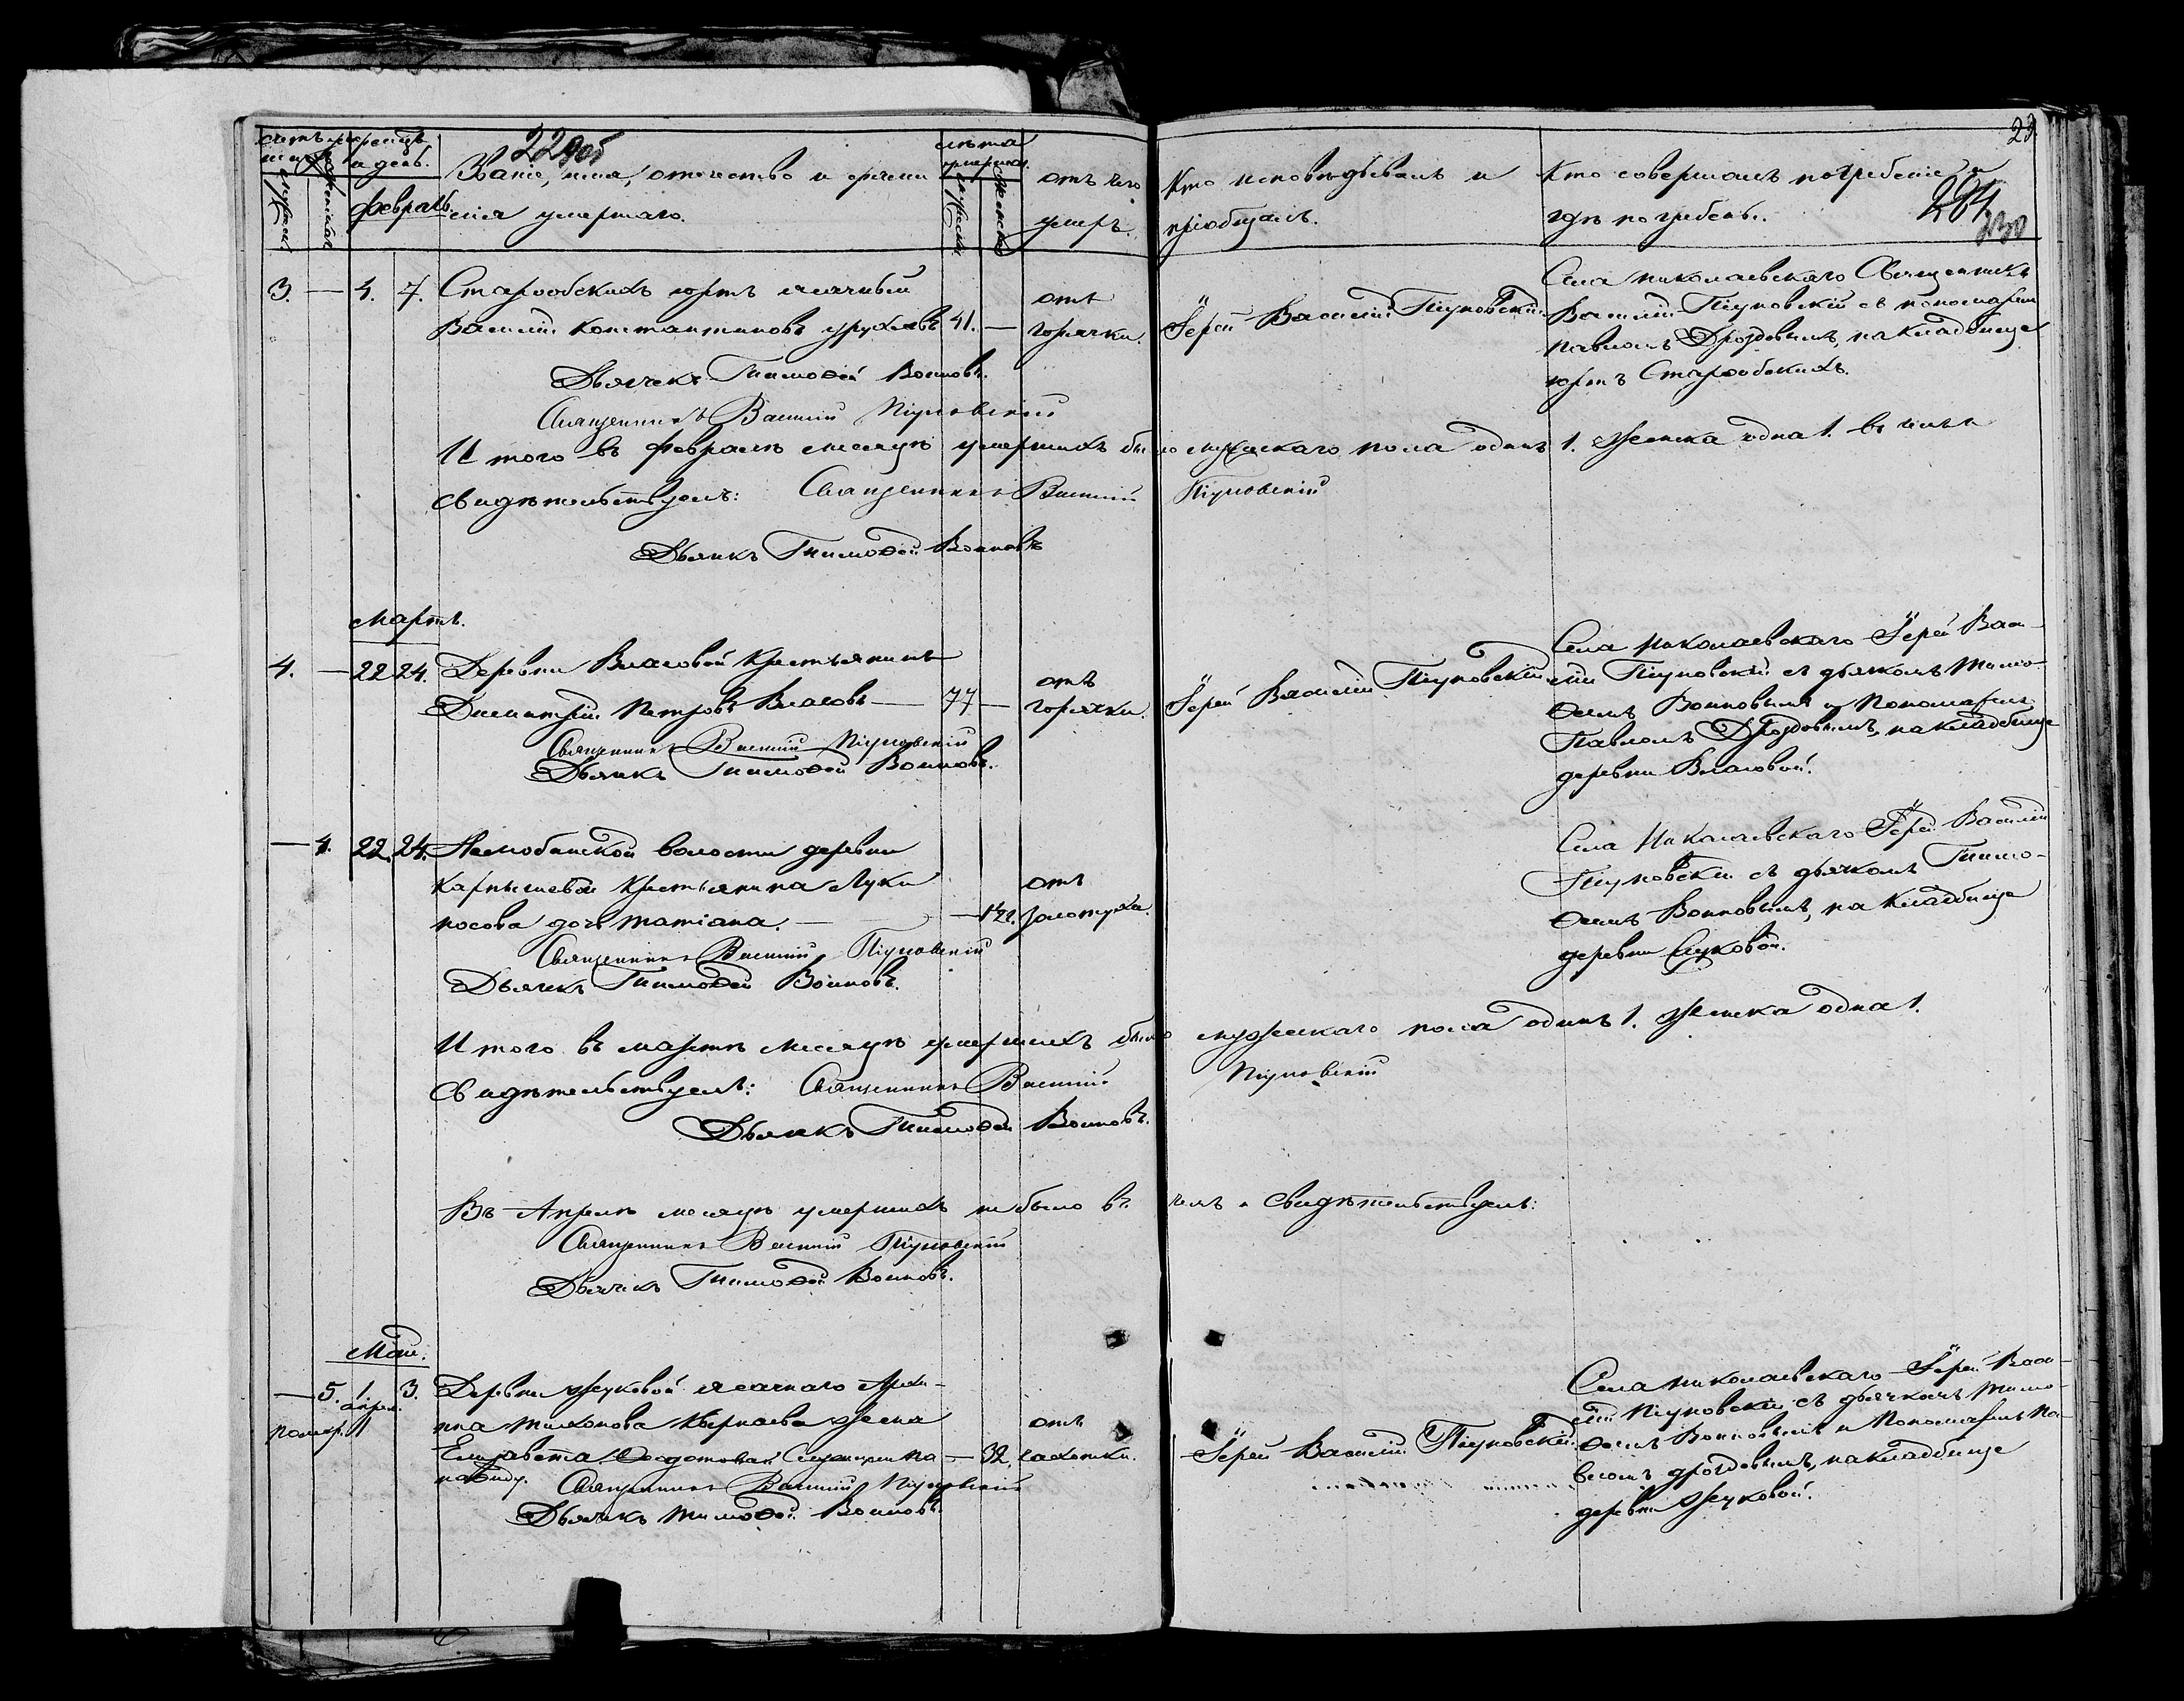 22 об
23
счетъ умершихъ
месяцъ и день.
Званіе, имя, отечество и фамилія умершаго.
лѣта умершаго
отъ чего умеръ.
Кто исповѣдывалъ и пріобщалъ.
Кто совершалъ погребеніе и гдѣ погребены.
Февраль.
3. — 4. 7. Старообскихъ юртъ ясачный
Василій Константиновъ 41. —
отъ горячки.
Іерей Василій
Села Николаевскаго Священникъ
Василій съ пономаремъ
Павломъ Дроздовымъ, на кладбище
юртъ Старообскихъ.
Дьячекъ Тимоѳей Воиновъ.
Священникъ Василій
И того въ Февралѣ месяцѣ умершихъ было мужескаго пола одинъ 1. женска одна 1. въ чемъ и
свидѣтельствуемъ: Священникъ Василій
Дьячекъ Тимоѳей Воиновъ
Мартъ.
4. — 22 24. Деревни Власовой Крестьянинъ
Димитрій Петровъ Власовъ — 77 —
отъ горячки.
Іерей Василій
Села Николаевскаго Іерей Васи-
лій съ дьячкомъ Тимо-
ѳеемъ Воиновымъ и Пономаремъ
Павломъ Дроздовымъ, на кладбище
деревни Власовой.
Священникъ Василій
Дьячекъ Тимоѳей Воиновъ.
— 4. 22. 24. волости деревни
Карпышевой Крестьянина Луки
Носова дочь Татіана. —
отъ золотухи.
Села Николаевскаго Іерей Василій
съ дьячкомъ Тимо-
ѳеемъ Воиновымъ, на кладбище
деревни
Священникъ Василій
Дьячекъ Тимоѳей Воиновъ.
И того въ мартѣ месяцѣ умершихъ было мужескаго пола одинъ 1. женска одна 1.
Свидѣтельствуемъ: Священникъ Василій
Дьячекъ Тимоѳей Воиновъ.
Въ Апрелѣ месяцѣ умершихъ не было въ чемъ и Свидѣтельствуемъ:
Священникъ Василій
Дьячекъ Тимоѳей Воиновъ.
Май.
— 5. 1. 3. Деревни Жуковой ясачнаго Архи-
апрел.
ппа Тихонова жена
Елизавета — 32.
отъ чахотки.
Іерей Василій
Села Николаевскаго Іерей Васи-
лій съ дьячкомъ Тимо-
ѳеемъ Воиновымъ и Пономаремъ Па-
вломъ Дроздовымъ, на кладбище
деревни Жуковой.
Священникъ Василій
Дьячекъ Тимоѳей Воиновъ.